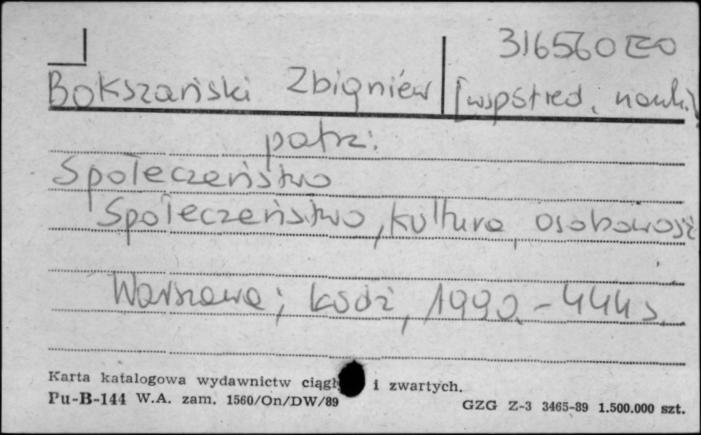 316560
Bokszański Zbigniew [współred. nauk.]
patrz:
Społeczeństwo
Społeczeństwo, kultura, osobowość
Warszawa; Łódź, 1990. - 444 s.
Karta katalogowa wydawnictw ciągł i zwartych.
Pu-B-144 W.A. zam. 1560/On/DW/89
GZG Z-3 3465-89 1.500.000 szt.